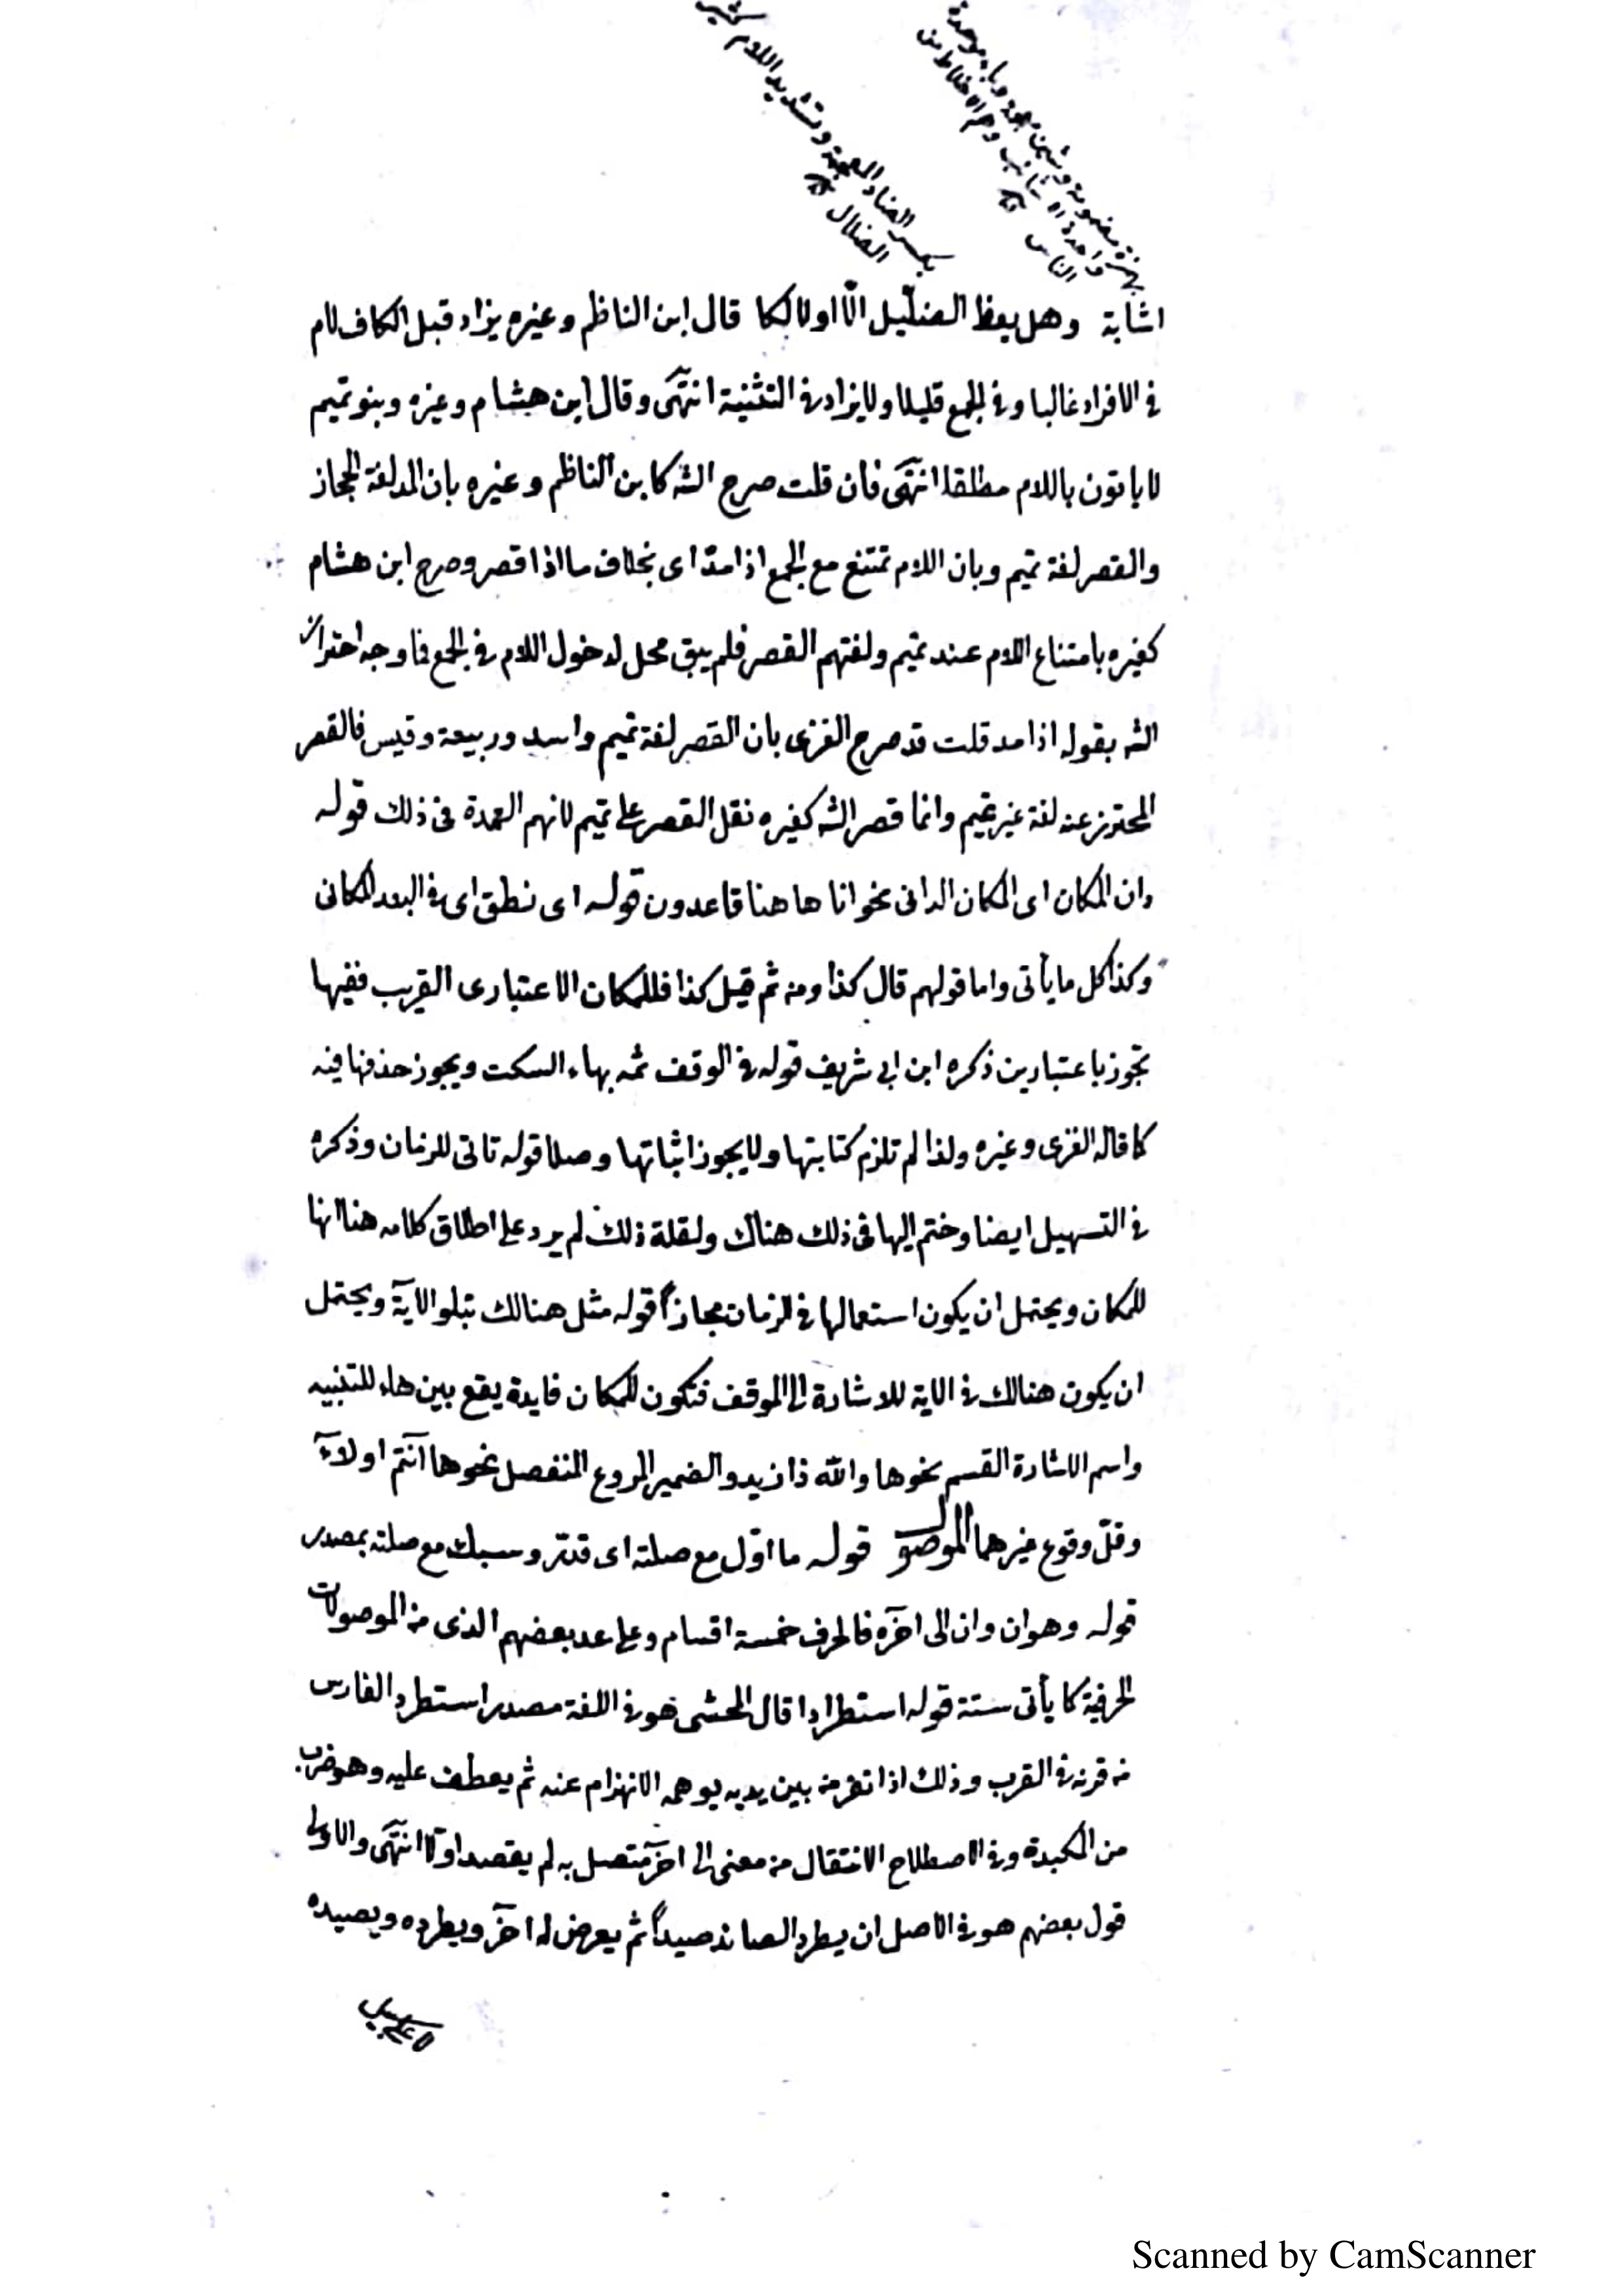 بهمزة مضمومة وشين معجمة وباء موحدة
واحدة الاشائب وهم الاخلاط من
الناس
بكسر الضاد المعجمة وتشديد اللام كثير
الضلال
اشابة وهل يعظ الضلّيل الّا اولالكا قال ابن الناظم وغيره يزاد قبل الكاف لام
فى الافراد غالبا وفى الجمع قليلا ولا يزاد فى التثنية انتهى وقال ابن هشام وغيره وبنو تميم
لا ياتون باللام مطلقا انتهى فان قلت صرح الشه كابن الناظم وغيره بان المد لغة الحجاز
والقصر لغة تميم وبان اللام تمتنع مع الجمع اذا مدّ اى بخلاف ما اذا قصر وصرح ابن هشام
كغيره بامتناع اللام عند تميم ولغتهم القصر فلم يبق محل لدخول اللام فى الجمع فما وجه احتراز
الشه بقوله اذا مد قلت قد صرح الغزى بان القصر لغة تميم واسد وربيعة وقيس فالقصر
المحترز عنه لغة غير تميم وانما قصر الشه كغيره نقل القصر على تميم لانهم العمدة فى ذلك قوله
وان المكان اى المكان الدانى نحو انا ها هنا قاعدون قوله اى نطق اى فى البعد المكانى
وكذا كل ما يأتى واما قولهم قال كذا ومن ثم قيل كذا فللمكان الاعتبارى القريب ففيها
تجوز باعتبارين ذكره ابن ابى شريف قوله فى الوقف ثمه بهاء السكت ويجوز حذفها فيه
كما قاله الغزى وغيره ولذا لم تلزم كتابتها ولا يجوز اثباتها وصلا قوله تاتى للزمان وذكره
فى التسهيل ايضا وختم اليها فى ذلك هناك ولقلة ذلك لم يرد على اطلاق كلامه هنا انها
للمكان ويحتمل ان يكون استعمالها فى الزمان مجازاً قوله مثل هنالك تبلو الآية ويحتمل
ان يكون هنالك فى الاية للاشارة الى الموقف فتكون للمكان فايدة يقع بين هاء للتنبيه
واسم الاشارة القسم نحو ها والله ذا زيد والضمير المرفوع المنفصل نحو ها انتم اولاء
وقلّ وقوع غيرهما الموصول قوله ما اوّل مع صلته اى قدّر وسبك مع صلته بمصدر
قوله وهو ان وان الى آخره فالحرف خمسة اقسام وعلى عد بعضهم الذى من الموصولات
الحرفية كما يأتى ستة قوله استطرادا قال المحشى هو فى اللغة مصدر استطرد الفارس
من قرنه فى القرب وذلك اذا تفر من بين يديه يوهمه الانهزام عنه ثم يعطف عليه وهو ضرب
من المكيدة وفى الاصطلاح الانتقال من معنى الى اخر متصل به لم يقصد اوّلا انتهى والاولى
قول بعضهم هو فى الاصل ان يطرد الصائد صيداً ثم يعرض له اخر ويطرده ويصيده
Scanned by CamScanner